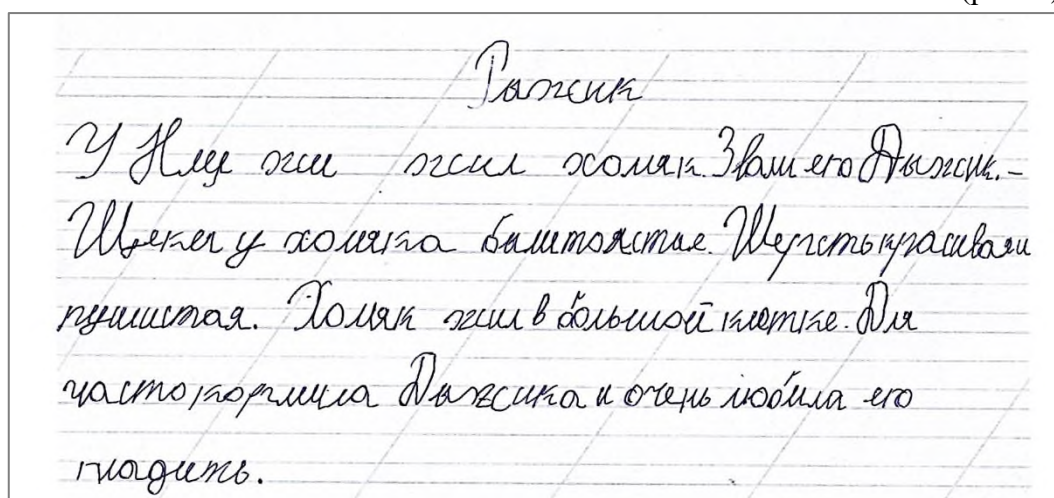 Рыжик
У жи жил хомяк. Звали его Дыжик.-
Щеки у хомяка былитолстые. Шерстькрасиваяи
пушистая. Хомяк жил в большой клетке. Для
часто кормила Дыжика и очень любила его
гладить.